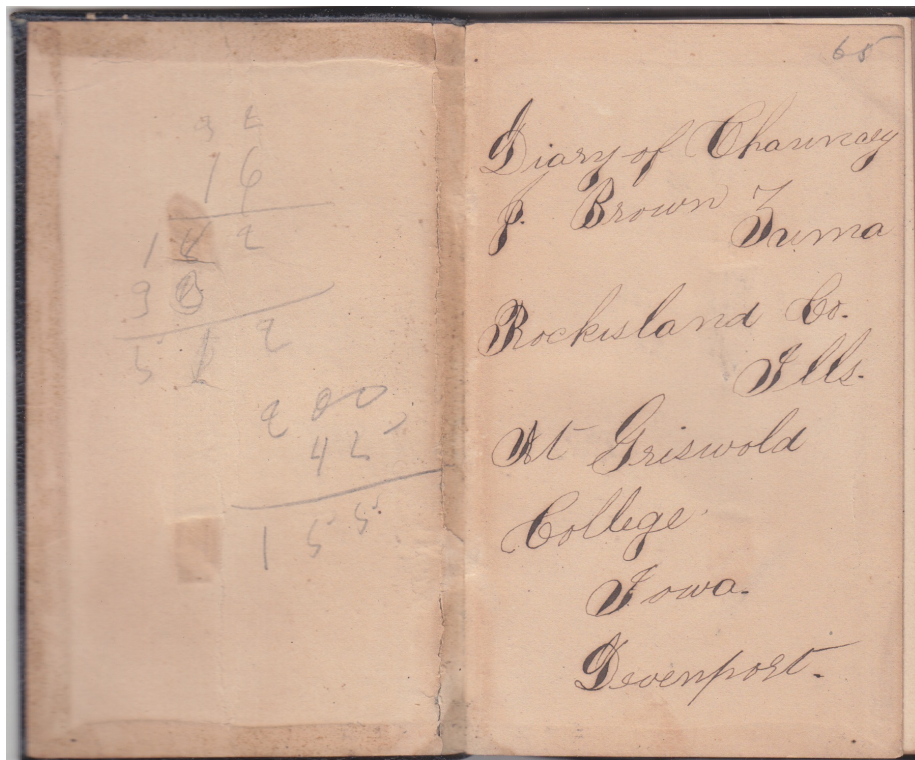 3 2
1 6
1 9 2
3 2
5 1 2
2 0 0
4 5
1 5 5
65
Diary of Chauncey
J. Brown
Zuma
Rockisland Co.
Ills.
At Griswold
College
Iowa.
Devenport.